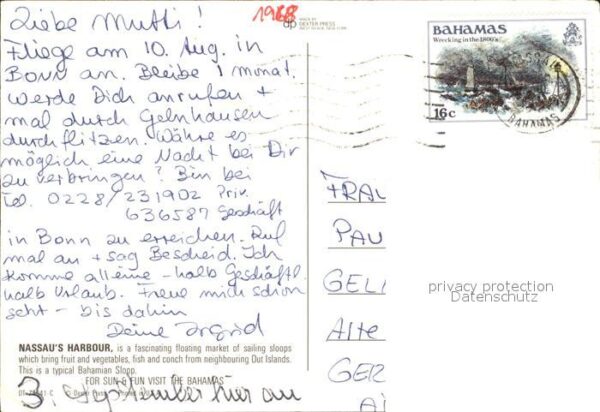 Liebe Mutti!
Fliege am 10. Aug. in
Bonn an. Bleibe 1 monat.
Werde Dich anrufen +
mal durch Gelnhausen
durchflitzen. Währe es
möglich eine Nacht bei Dir
zu verbringen? Bin bei
Tel. 0228/231902 Priv.
636587 Geschäft
in Bonn zu erreichen. Ruf
mal an + sag Bescheid. Ich
komme alleine - halb Geschäftl.
halb Urlaub. Freue mich schon
seht - bis dahin
Deine Ingrid
NASSAU'S HARBOUR, is a fascinating floating market of sailing sloops
which bring fruit and vegetables, fish and conch from neighbouring Out Islands.
This is a typical Bahamian Slopp.
FOR SUN & FUN VISIT THE BAHAMAS
3. September hier an
1968
MADE BY
DEXTER PRESS
WEST NYACK, NEW YORK
BAHAMAS
Wrecking in the 1800's
16c
BAHAMAS
FRAU
PAU
GELN
Alte
GER
privacy protection
Datenschutz